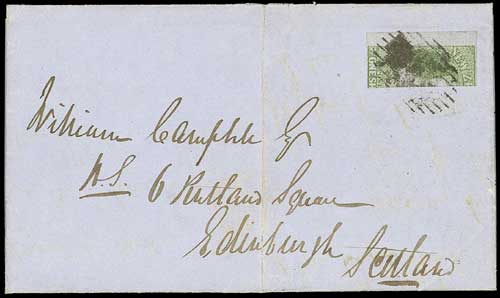 William Campbell Esq
W.S. 6 Rutland Square
Edinburgh
Scotland